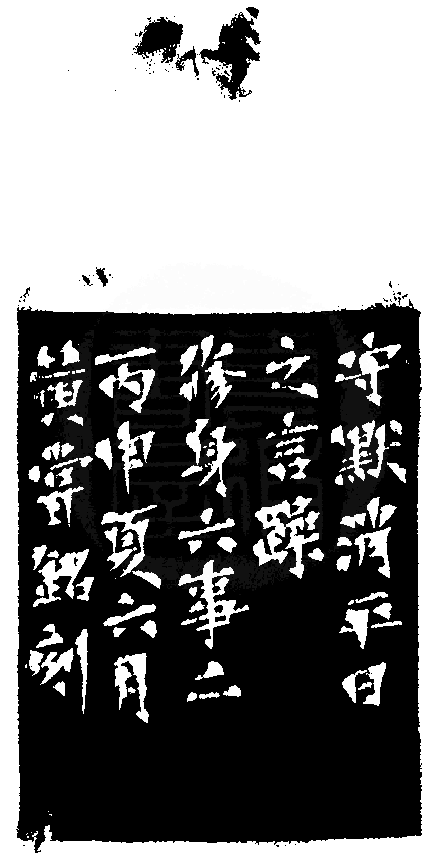 守默消平日
之言躁
修身六事二
丙申夏六月
黄嘗銘刻